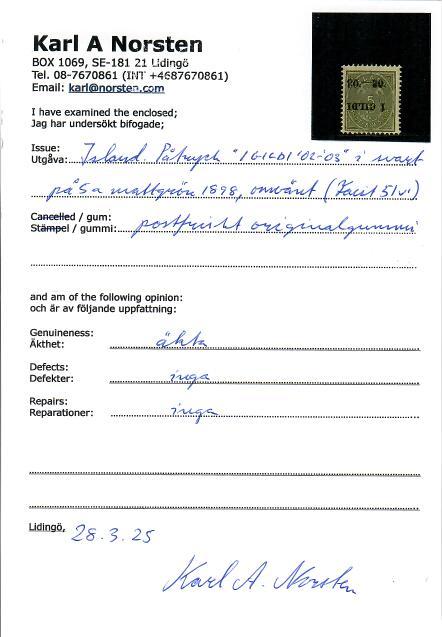 Karl A Norsten
BOX 1069, SE-181 21 Lidingö
Tel. 08-7670861 (INT +4687670861)
Email: karl@norsten.com
I have examined the enclosed;
Jag har undersökt bifogade;
Issue:
Utgåva: Island. Påtryck "I GILDI '02-'03" i svart
på 5a mattgrön 1898, omvänt (Facit 51v1)
Cancelled / gum:
Stämpel / gummi: postfriskt originalgummi
and am of the following opinion:
och är av följande uppfattning:
Genuineness:
Äkthet: äkta
Defects:
Defekter: inga
Repairs:
Reparationer: inga
Lidingö, 28.3.25
Karl A. Norsten
'02-'03
5
I GILDI